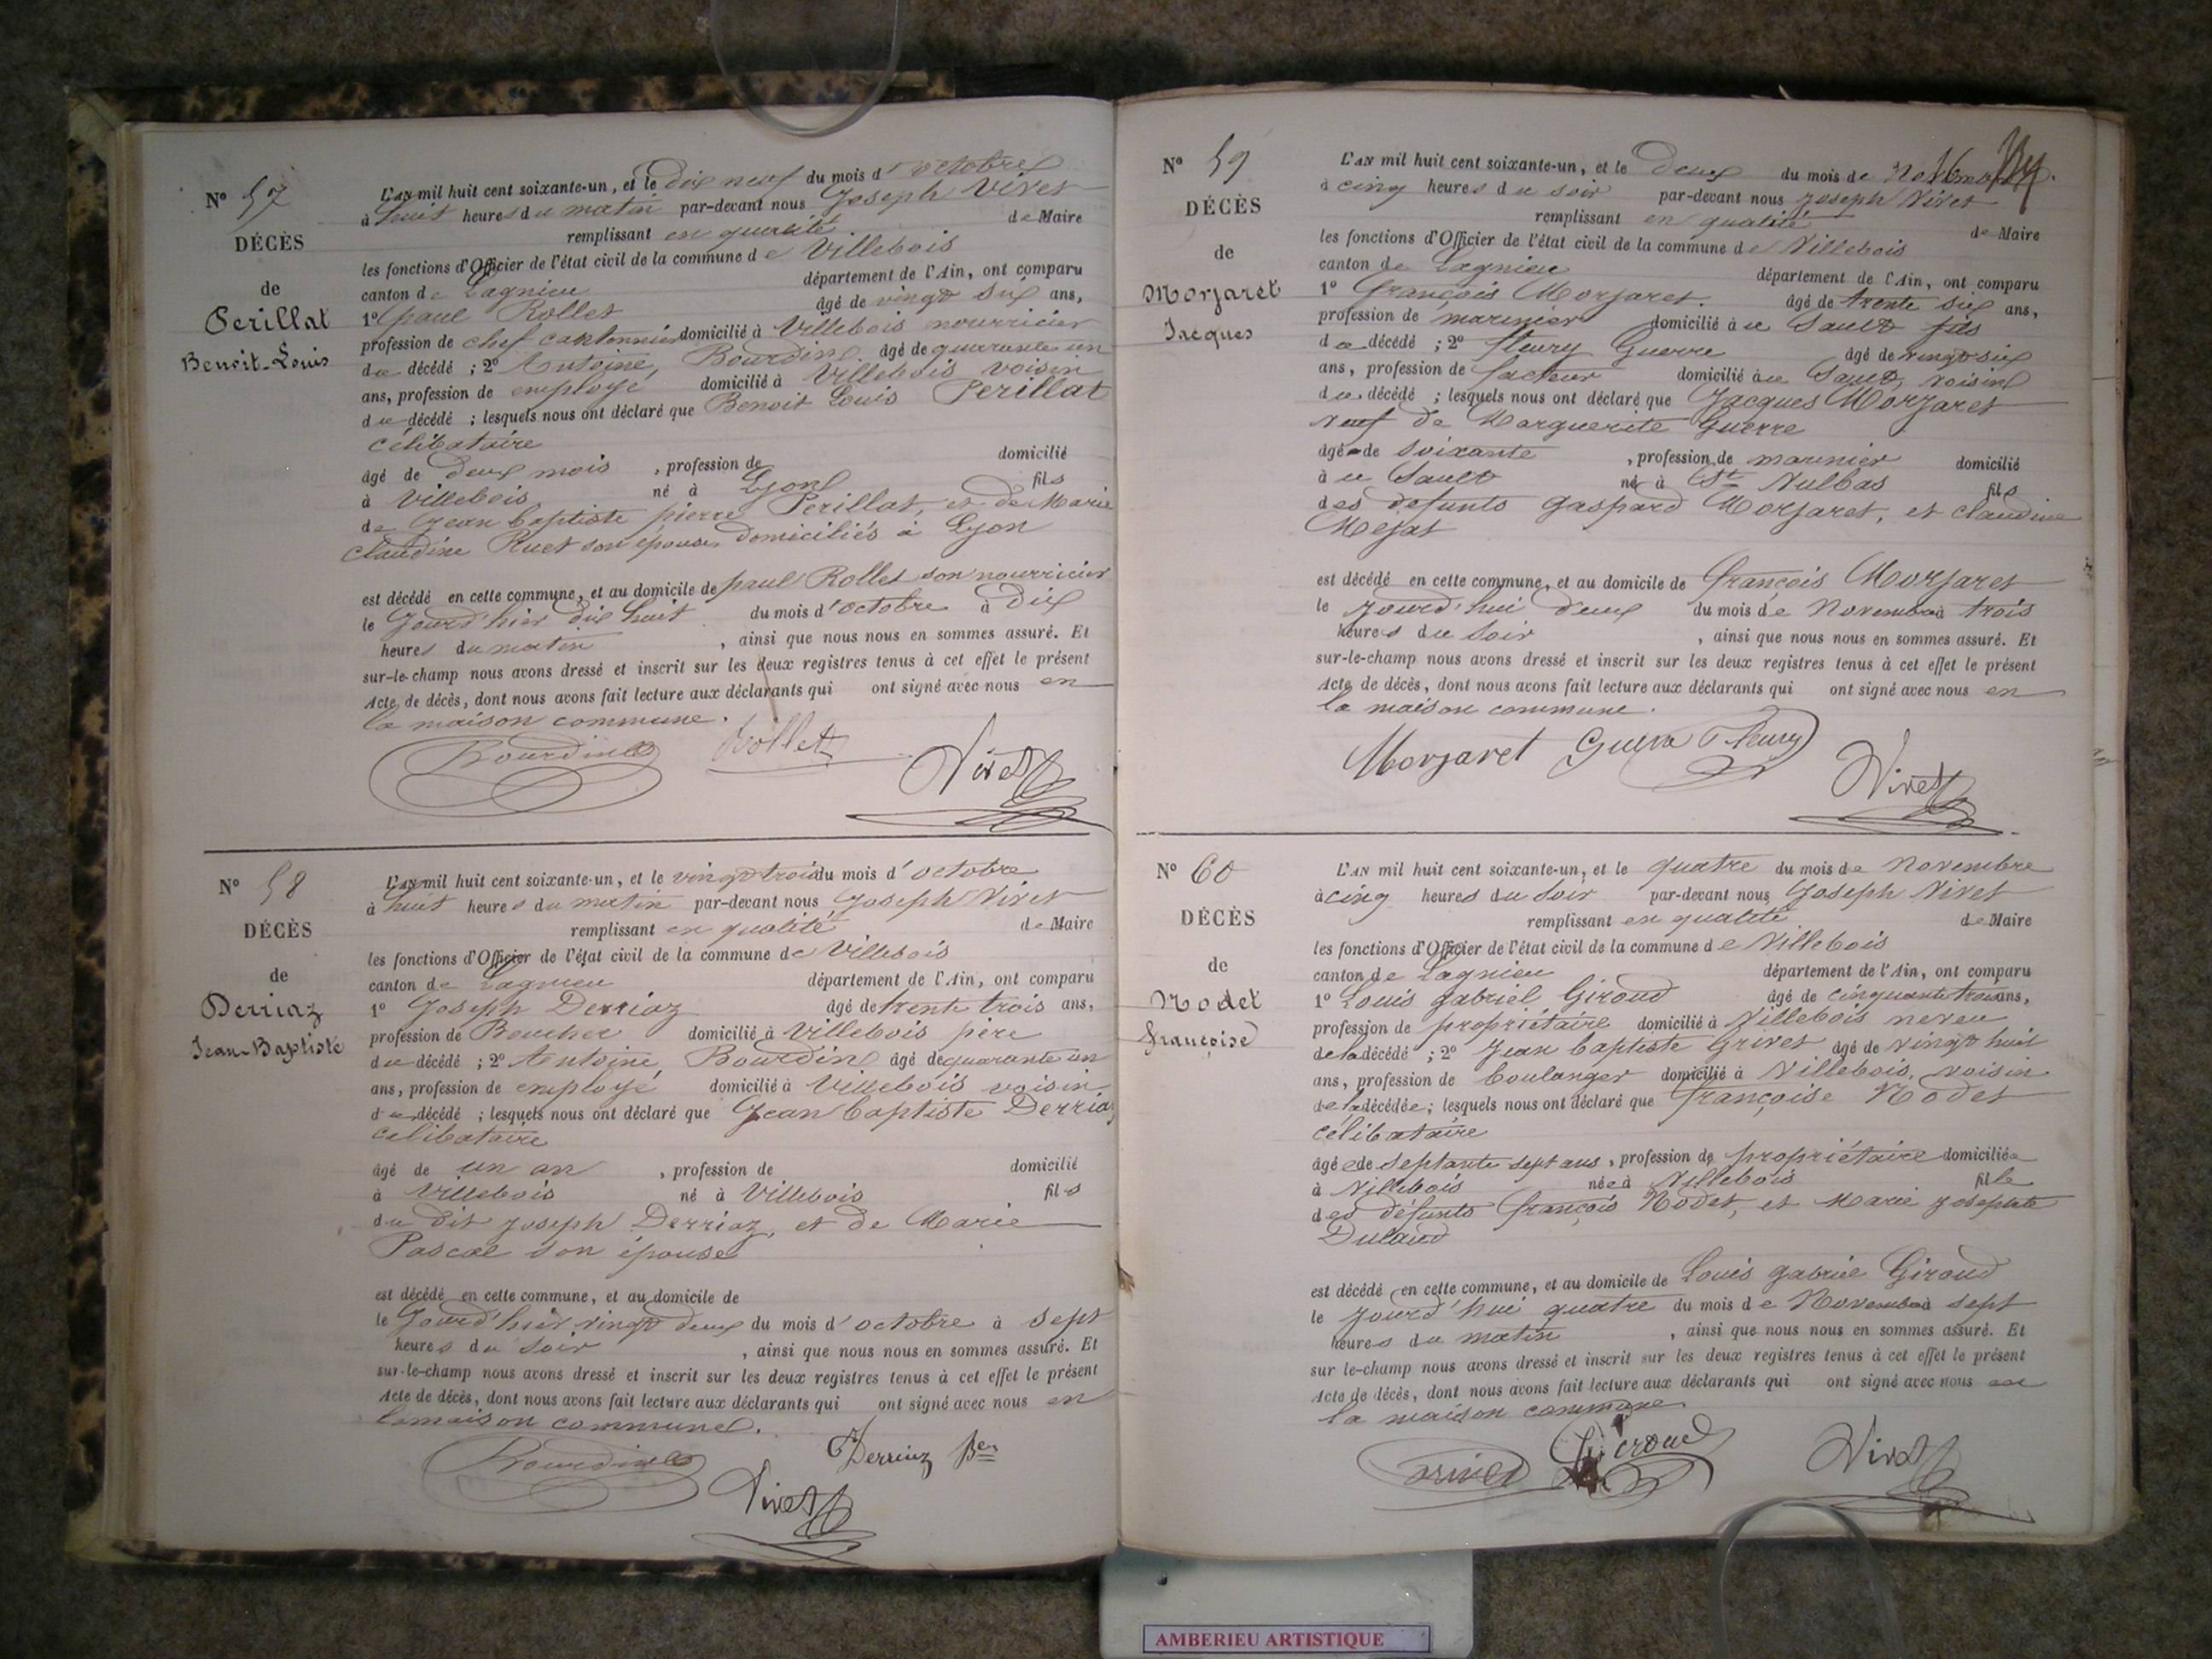 N° 57
DÉCÈS
de
Perillat
Benoit-Louis
L'AN mil huit cent soixante-un, et le dix neuf du mois d'octobre
à huit heures du matin par-devant nous Joseph Vivet
remplissant en qualité de Maire
les fonctions d'Officier de l'état civil de la commune de Villebois
canton de Lagnieu département de l'Ain, ont comparu
1° paul Rollet âgé de vingt six ans,
profession de chef cantonnier domicilié à Villebois nourricier
du décédé ; 2° Antoine, Bourdin âgé de quarante un
ans, profession de employé domicilié à Villebois voisin
du décédé ; lesquels nous ont déclaré que Benoit Louis Perillat
célibataire
âgé de deux mois , profession de domicilié
à Villebois né à Lyon fils
de Jean baptiste pierre Perillat, et de Marie
claudine Ruet son épouse domiciliés à Lyon
est décédé en cette commune, et au domicile de paul Rollet son nourricier
le Jourd'hier dix huit du mois d'octobre à dix
heures du matin , ainsi que nous nous en sommes assuré. Et
sur-le-champ nous avons dressé et inscrit sur les deux registres tenus à cet effet le présent
Acte de décès, dont nous avons fait lecture aux déclarants qui ont signé avec nous en
la maison commune.
Bourdin Rollet Vivet
N° 58
DÉCÈS
de
Derriaz
Jean-Baptiste
L'AN mil huit cent soixante-un, et le vingt trois du mois d'octobre
à huit heures du matin par-devant nous Joseph Vivet
remplissant en qualité de Maire
les fonctions d'Officier de l'état civil de la commune de Villebois
canton de Lagnieu département de l'Ain, ont comparu
1° Joseph Derriaz âgé de trente trois ans,
profession de Boucher domicilié à Villebois père
du décédé ; 2° Antoine, Bourdin âgé de quarante un
ans, profession de employé domicilié à Villebois voisin
du décédé ; lesquels nous ont déclaré que Jean baptiste Derriaz
célibataire
âgé de un an , profession de domicilié
à Villebois né à Villebois fils
du dit Joseph Derriaz, et de Marie
Pascal son épouse
est décédé en cette commune, et au domicile de
le Jourd'hier vingt deux du mois d'octobre à sept
heures du soir , ainsi que nous nous en sommes assuré. Et
sur-le-champ nous avons dressé et inscrit sur les deux registres tenus à cet effet le présent
Acte de décès, dont nous avons fait lecture aux déclarants qui ont signé avec nous en
la maison commune.
Bourdin Derriaz Vivet
N° 59
DÉCÈS
de
Morjaret
Jacques
L'AN mil huit cent soixante-un, et le deux du mois de novembre
à cinq heures du soir par-devant nous Joseph Vivet
remplissant en qualité de Maire
les fonctions d'Officier de l'état civil de la commune de Villebois
canton de Lagnieu département de l'Ain, ont comparu
1° François Morjaret. âgé de trente six ans,
profession de marinier domicilié à u Sault fils
du décédé ; 2° fleury Guerre âgé de vingt six
ans, profession de facteur domicilié à u Sault, voisin
du décédé ; lesquels nous ont déclaré que Jacques Morjaret
veuf de Marguerite Guerre
âgé de soixante , profession de marinier domicilié
à u Sault né à St Vulbas fils
des defunts gaspard Morjaret, et claudine
Mejat
est décédé en cette commune, et au domicile de François Morjaret
le Jourd'hui deux du mois de Novembre à trois
heures du soir , ainsi que nous nous en sommes assuré. Et
sur-le-champ nous avons dressé et inscrit sur les deux registres tenus à cet effet le présent
Acte de décès, dont nous avons fait lecture aux déclarants qui ont signé avec nous en
la maison commune.
Morjaret Guerre Fleury Vivet
N° 60
DÉCÈS
de
Nodet
françoise
L'AN mil huit cent soixante-un, et le quatre du mois de Novembre
à cinq heures du soir par-devant nous Joseph Vivet
remplissant en qualité de Maire
les fonctions d'Officier de l'état civil de la commune de Villebois
canton de Lagnieu département de l'Ain, ont comparu
1° Louis gabriel Giroud âgé de cinquante trois ans,
profession de propriétaire domicilié à Villebois neveu
de la décédé ; 2° Jean baptiste Grivet âgé de vingt huit
ans, profession de boulanger domicilié à Villebois, voisin
de la décédée ; lesquels nous ont déclaré que françoise Nodet
célibataire
âgée de septante sept ans , profession de propriétaire domiciliée
à Villebois née à Villebois fille
des defunts François Nodet, et Marie Josephte
Dulaud
est décédé en cette commune, et au domicile de Louis gabriel Giroud
le jourd'hui quatre du mois de Novembre à sept
heures du matin , ainsi que nous nous en sommes assuré. Et
sur le-champ nous avons dressé et inscrit sur les deux registres tenus à cet effet le présent
Acte de décès, dont nous avons fait lecture aux déclarants qui ont signé avec nous en
la maison commune
Grivet Giroud Vivet
AMBERIEU ARTISTIQUE